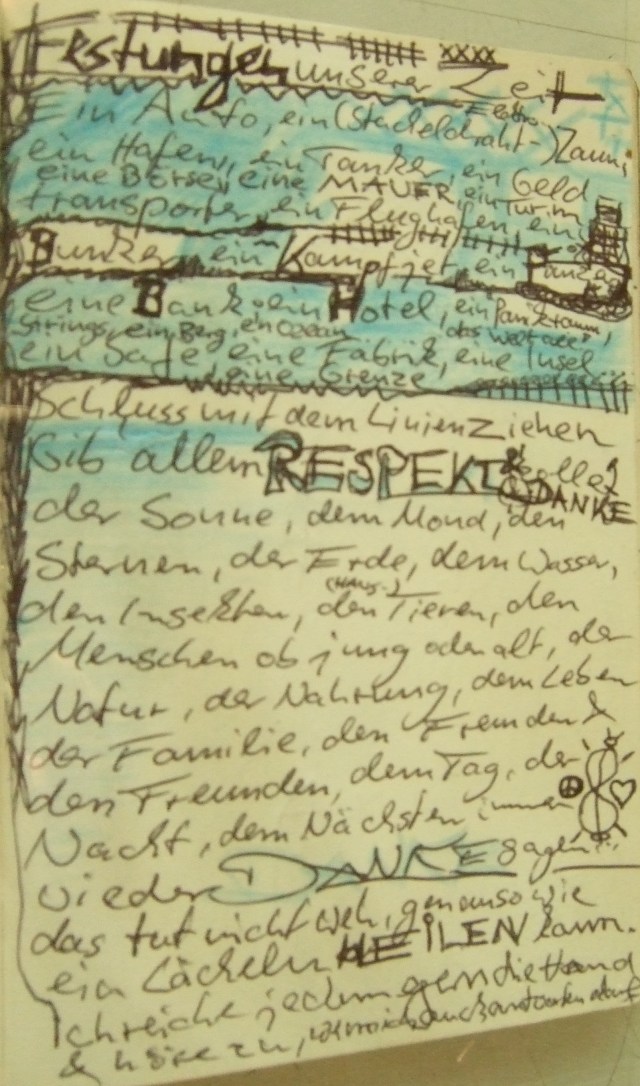 Festungen unserer Zeit
xxxx
Elektro-
Ein Auto, ein (Stacheldraht-) Zaun,
ein Hafen, ein Tanker, ein Geld
eine Börse, eine MAUER, ein Turm
transporter, ein Flughafen, ein
Bunker, ein Kampfjet, ein Panzer
eine Bank, ein Hotel, ein Panikraum,
ein Berg, ein Ozean, das Weltall
ein Safe, eine Fabrik, eine Insel
eine Grenze
Schluss mit dem Linienziehen
Gib allem RESPEKT &
& DANKE
der Sonne, dem Mond, den
Sternen, der Erde, dem Wasser,
(HAUS-)
den Insekten, den Tieren, den
Menschen ob jung oder alt, der
Natur, der Nahrung, dem Leben
der Familie, den Fremden &
den Freunden, dem Tag, der
Nacht, dem Nächsten immer
wieder DANKE sagen
das tut nicht weh, genauso wie
ein Lächeln HEILEN kann.
Ich reiche jedem gern die Hand
& höre zu,